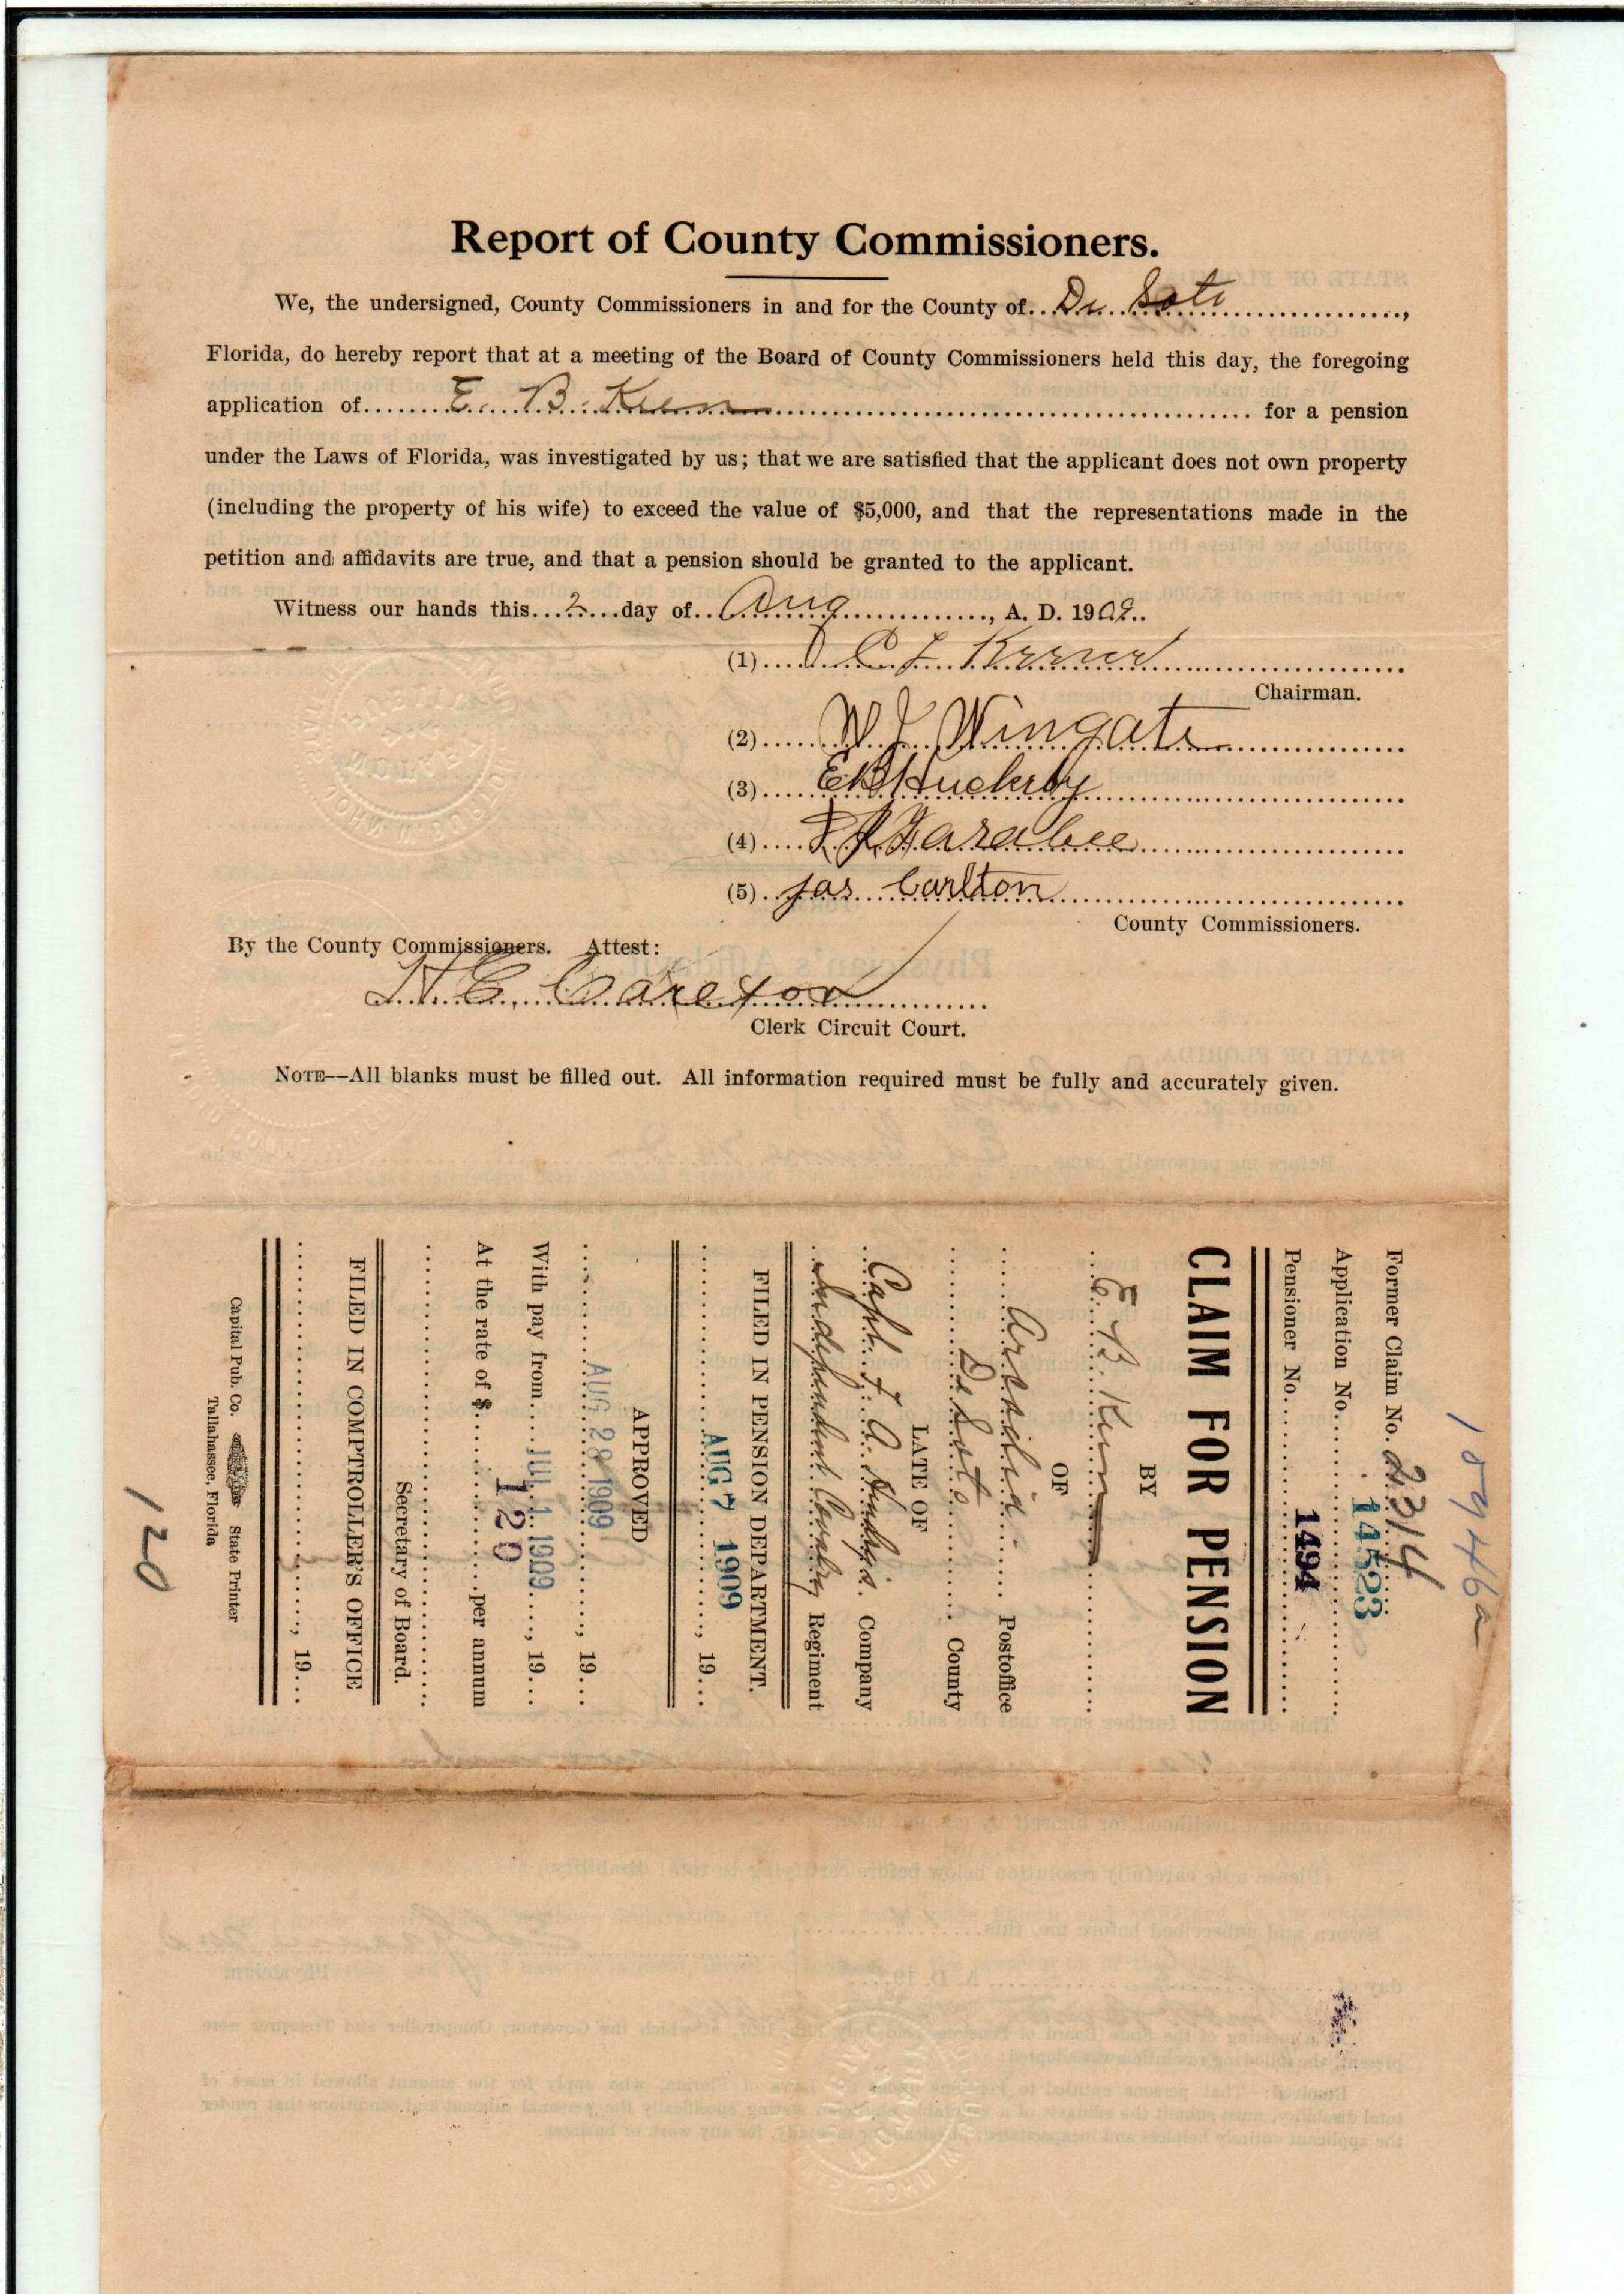 Report of County Commissioners.
We, the undersigned, County Commissioners in and for the County of De Soto,
Florida, do hereby report that at a meeting of the Board of County Commissioners held this day, the foregoing
application of E. B. Keen for a pension
under the Laws of Florida, was investigated by us; that we are satisfied that the applicant does not own property
(including the property of his wife) to exceed the value of $5,000, and that the representations made in the
petition and affidavits are true, and that a pension should be granted to the applicant.
Witness our hands this 2 day of Aug, A. D. 1909.
(1)
Chairman.
(2) W J Wingate
(3) E B Huckeby
(4) Farabee
(5) Jas Carlton
County Commissioners.
By the County Commissioners. Attest:
Clerk Circuit Court.
NOTE—All blanks must be filled out. All information required must be fully and accurately given.
Former Claim No. 2314
Application No. 14523
Pensioner No. 1494
CLAIM FOR PENSION
BY
E. B. Keen
OF
Arcadia Postoffice
De Soto County
LATE OF
Capt. F. A. Hendry's Company
Independent Cavalry Regiment
FILED IN PENSION DEPARTMENT.
AUG 7 1909, 19
APPROVED
AUG 28 1909, 19
With pay from JUL 1 1909, 19
At the rate of $ 120 per annum
Secretary of Board.
FILED IN COMPTROLLER'S OFFICE
, 19
Capital Pub. Co. State Printer
Tallahassee, Florida
120